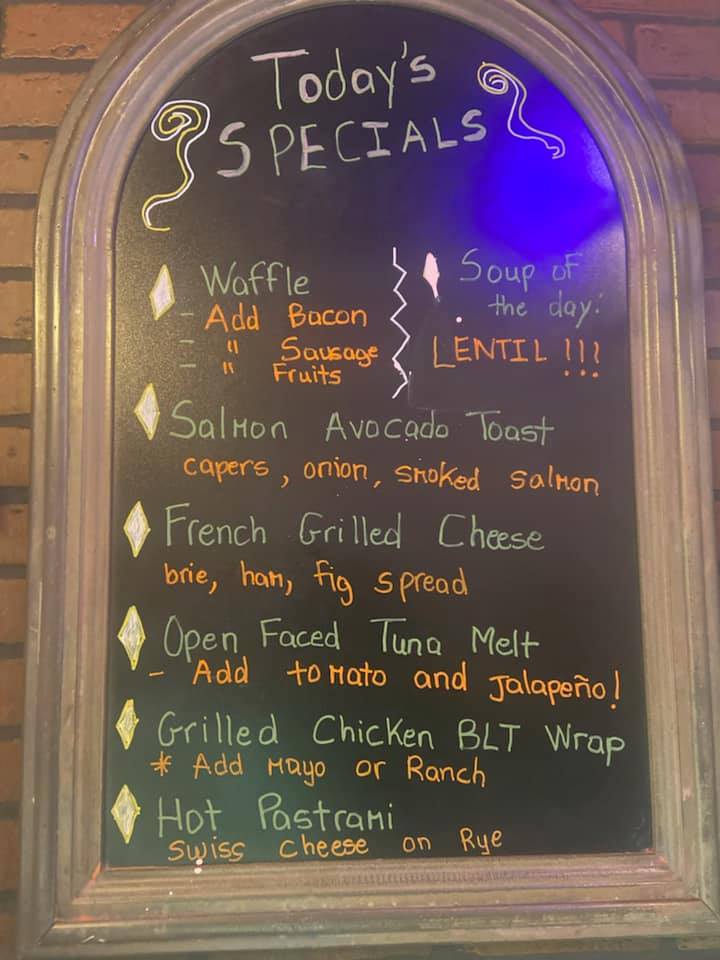 Today's
SPECIALS
Waffle
- Add Bacon
- " Sausage
- " Fruits
Soup of
the day:
LENTIL !!!
Salmon Avocado Toast
capers, onion, smoked salmon
French Grilled Cheese
brie, ham, fig spread
Open Faced Tuna Melt
- Add tomato and jalapeño!
Grilled Chicken BLT Wrap
* Add Mayo or Ranch
Hot Pastrami
Swiss cheese on Rye